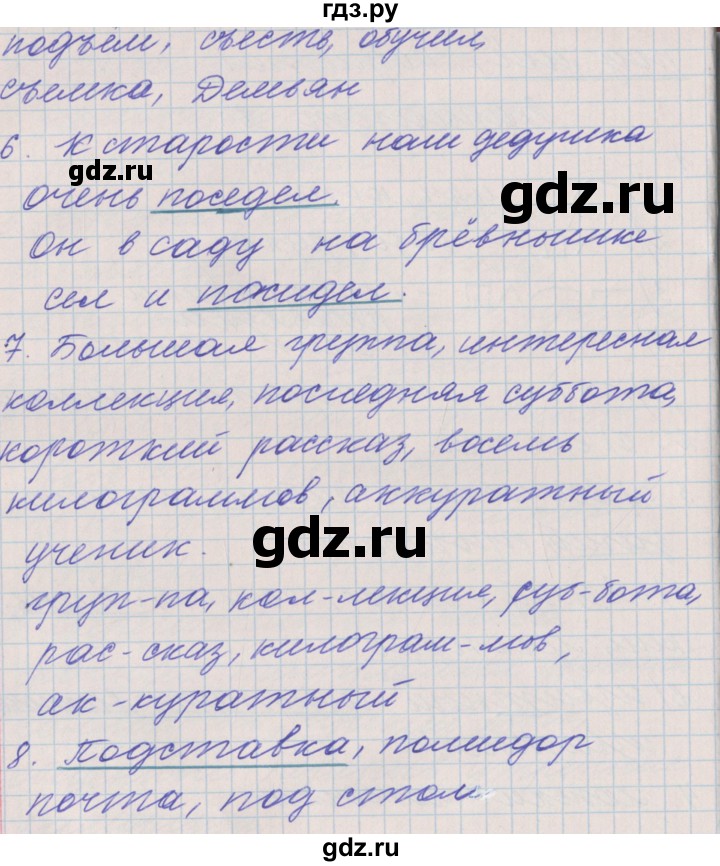 гдз.ру
подъем, съесть, обучил,
съемка, Демьян
6. К старости наш дедушка
gdz.ru
очень поседел.
gdz.ru
Он в саду на брёвнышке
сел и посидел.
7. Большая группа, интересная
коллекция, последняя суббота,
короткий рассказ, восемь
килограммов, аккуратный
ученик.
gdz.ru
груп-па, кол-лекция, суб-бота,
рас-сказ, килограм-мов,
ак-куратный
8. Подставка, помидор
почта, под стол
gdz.ru
gdz.ru